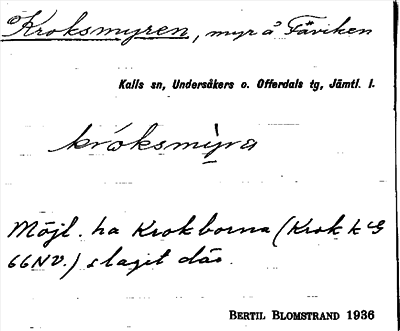 Kroksmyren, myr å Fäviken
Kalls sn, Undersåkers o. Offerdals tg, Jämtl. l.
króksmỳra
Möjl. ha Krokborna (Krok k G
66NV.) slaget där.
BERTIL BLOMSTRAND 1936